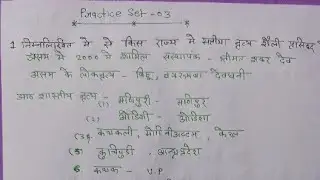 Practice Set - 03
1 निम्नलिखित में से किस राज्य में सत्रीया नृत्य शैली प्रसिद्ध
असम में 2000 में शामिल संस्थापक - श्रीमंत शंकर देव
असम के लोकनृत्य - बिहू,
आठ शास्त्रीय नृत्य - (1) मणिपुरी - मणिपुर
(2) ओडिसी - ओडिशा
(3) कथकली, मोहिनीअट्टम, केरल
(5) कुचिपुड़ी, आन्ध्रप्रदेश
6 कथक - U.P